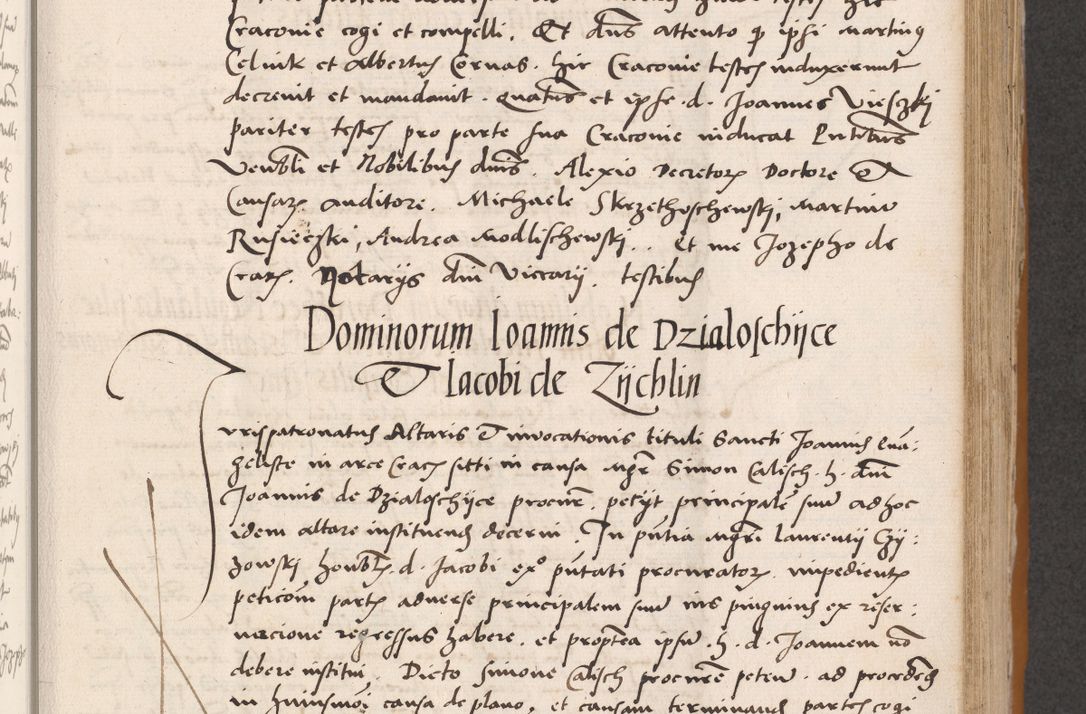 Craconie cogi et compelli. Et dns attento q ipsi Martinus
Celnik et Albertus Cornas. hic Craconie testes induxerunt
decrevit et mandavit. Quatens et ipse. d. Joannes Vieszki
pariter testes pro parte sua Craconie inducat Pntibus
Venbli et Nobilibus dnis. Alexio Decretor Doctore et
Causar. auditore. Michaele Skrzethoschewski, Martino
Rusieczki, Andrea Modlischewski.. Et me Jozepho de
Crac. Notarijs dni Viccarij. testibus
Dominorum Ioannis de Dzialoschijce
Et Iacobi de Zijchlin
Jurispatronatus Altaris et invocationis tituli Sancti Joannis Eva:
geliste in arce Crac sitti in causa Mgr Simon Calisch. h. dni
Joannis de Dzialoschijce procur. petijt principale suum ad hoc
idem altare instituend decerni. In pntia Mgri Laurentij Czij:
zowskj honbl. d. Jacobi exo putati procurator. impedient
peticoni part adverse principalem suum ius pinguius ex reser:
uacione regressus habere. et proptea ipsum. h. d. Joannem no
debere institui. Dicto Simone Calisch procure petere. ad procedend
in huiusmoi causa de plano, et causam terminand partes cogi